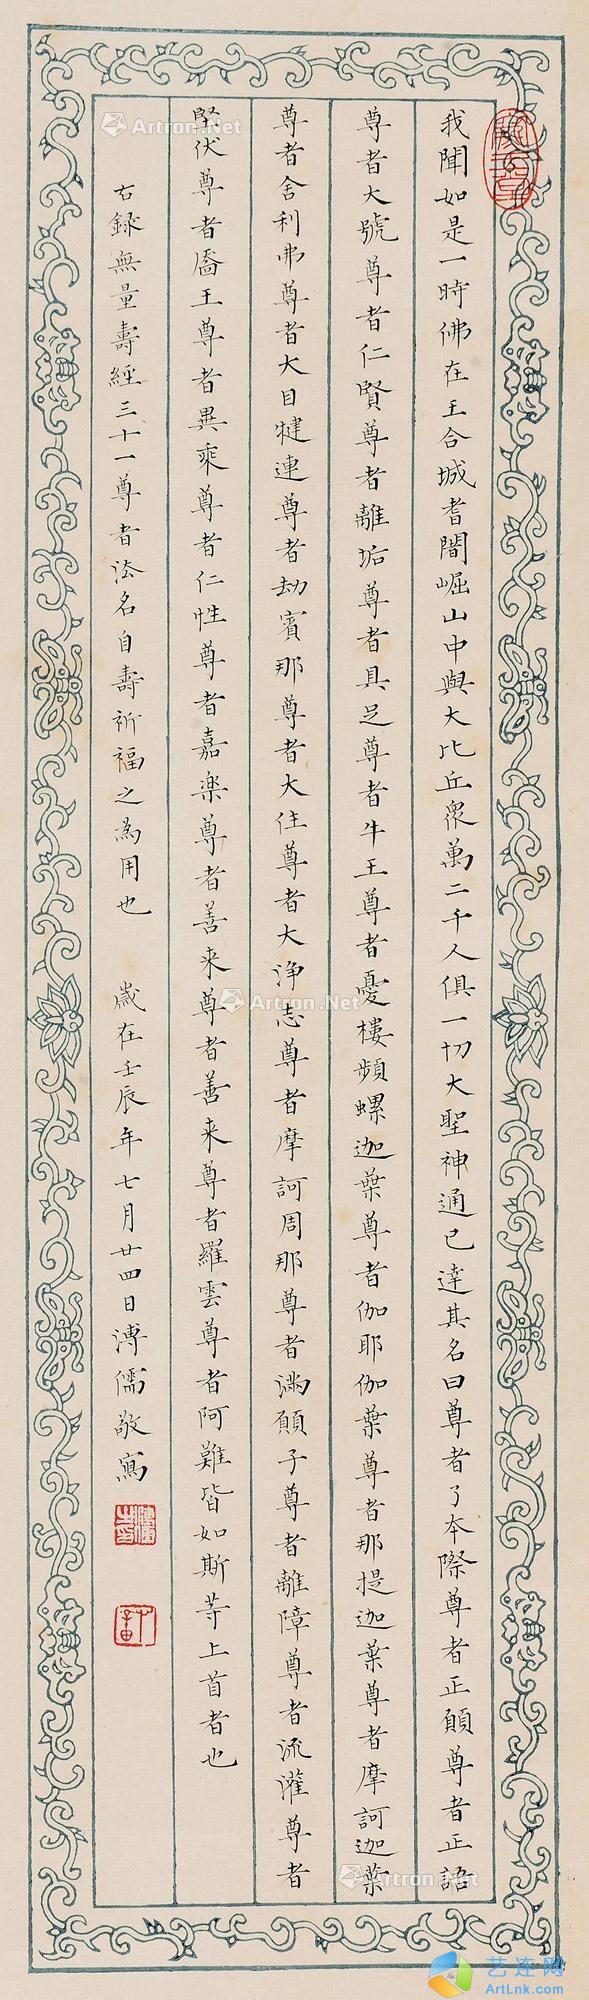 我聞如是一時佛在王合城耆闍崛山中與大比丘衆萬二千人俱一切大聖神通已達其名曰尊者了本際尊者正願尊者正語
尊者大號尊者仁賢尊者離垢尊者具足尊者牛王尊者憂樓頻螺迦葉尊者伽耶伽葉尊者那提迦葉尊者摩訶迦葉
尊者舍利弗尊者大目犍連尊者劫賓那尊者大住尊者大浄志尊者摩訶周那尊者滿願子尊者離障尊者流灌尊者
堅伏尊者僑王尊者異乘尊者仁性尊者嘉楽尊者善来尊者善来尊者羅雲尊者阿難皆如斯等上首者也
右録無量壽經三十一尊者法名自壽祈福之為用也 歲在壬辰年七月廿四日溥儒敬寫
Artron.Net
Artron.Net
Artron.Net
Artron.Net
艺连网
ArtLnk.com